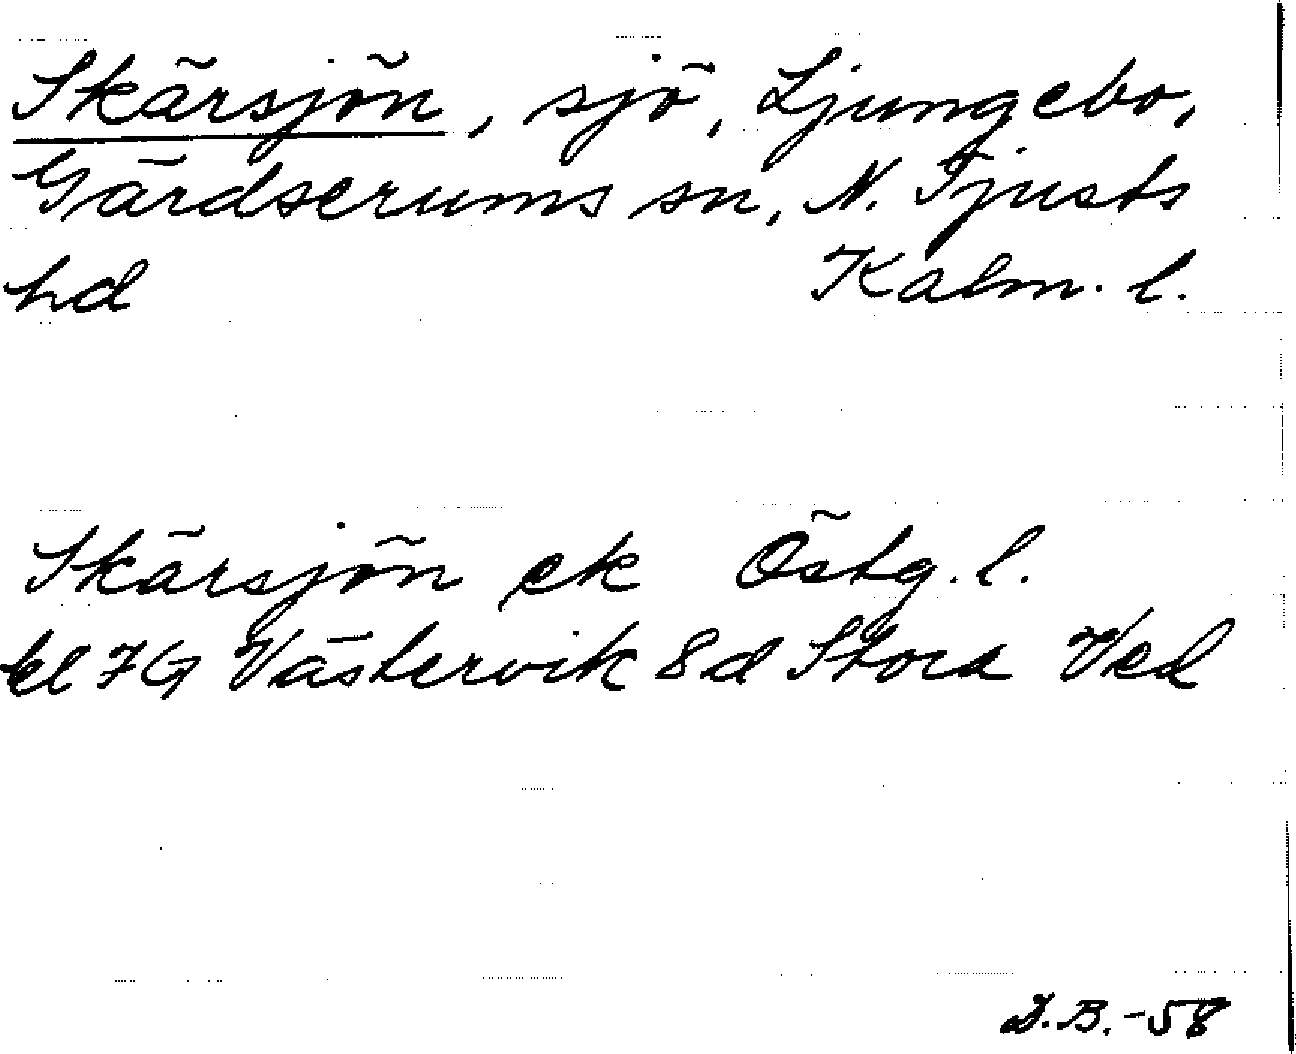 Skärsjön, sjö, Ljungebo,
Gärdserums sn, N. Tjusts
hd Kalm. l.
Skärsjön ek Östg. l.
bl 7G Västervik 8d Stora Ved
I.B.-58